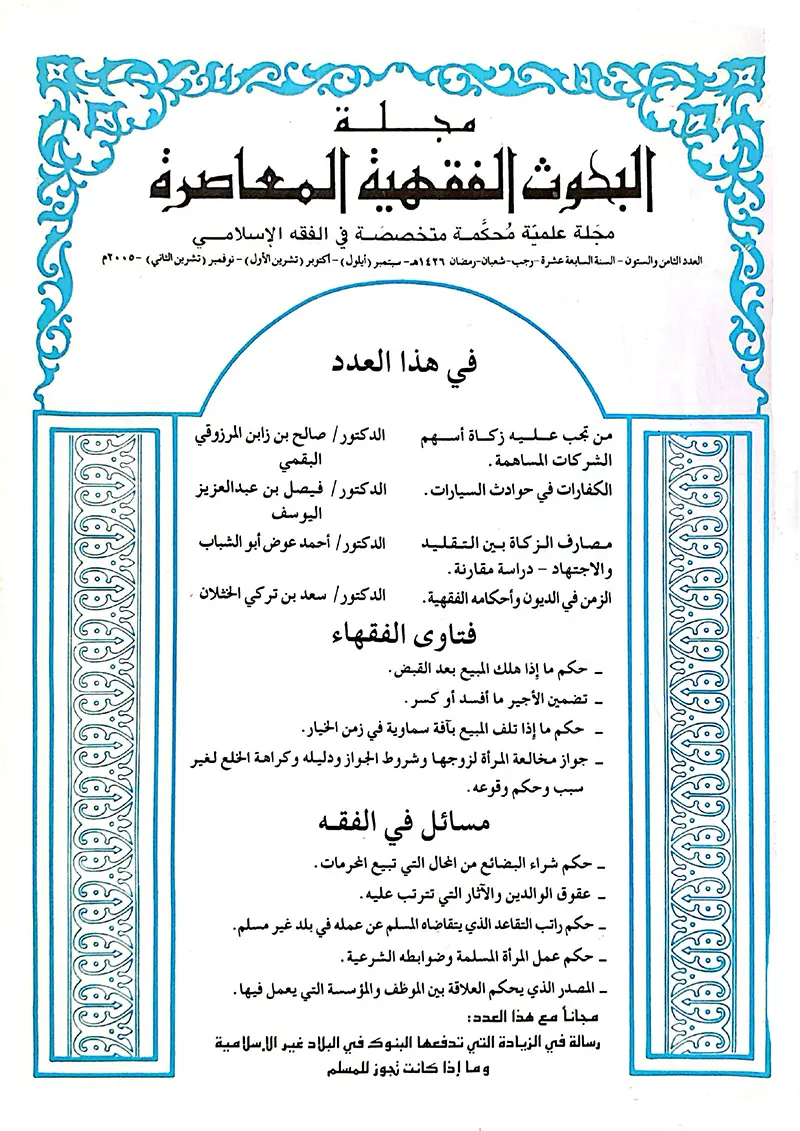 مجلة
البحوث الفقهية المعاصرة
مجلة علميّة مُحكَّمة متخصصة في الفقه الإسلامي
العدد الثامن والستون - السنة السابعة عشرة - رجب - شعبان - رمضان ١٤٢٦هـ - سبتمبر (أيلول) - أكتوبر (تشرين الأول) - نوفمبر (تشرين الثاني) - ٢٠٠٥م
في هذا العدد
من تجب عليه زكاة أسهم الدكتور/ صالح بن زابن المرزوقي
الشركات المساهمة. البقمي
الكفارات في حوادث السيارات. الدكتور/ فيصل بن عبدالعزيز
اليوسف
مصارف الزكاة بين التقليد الدكتور/ أحمد عوض أبو الشباب
والاجتهاد - دراسة مقارنة.
الزمن في الديون وأحكامه الفقهية. الدكتور/ سعد بن تركي الخثلان
فتاوى الفقهاء
ـ حكم ما إذا هلك المبيع بعد القبض.
ـ تضمين الأجير ما أفسد أو كسر.
ـ حكم ما إذا تلف المبيع بآفة سماوية في زمن الخيار.
ـ جواز مخالعة المرأة لزوجها وشروط الجواز ودليله وكراهة الخلع لغير
سبب وحكم وقوعه.
مسائل في الفقه
ـ حكم شراء البضائع من المحال التي تبيع المحرمات.
ـ عقوق الوالدين والآثار التي تترتب عليه.
ـ حكم راتب التقاعد الذي يتقاضاه المسلم عن عمله في بلد غير مسلم.
ـ حكم عمل المرأة المسلمة وضوابطه الشرعية.
ـ المصدر الذي يحكم العلاقة بين الموظف والمؤسسة التي يعمل فيها.
مجاناً مع هذا العدد:
رسالة في الزيادة التي تدفعها البنوك في البلاد غير الإسلامية
وما إذا كانت تجوز للمسلم